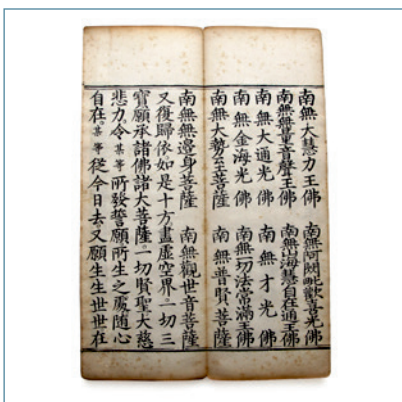 南無大慧力王佛　南無阿閦毗歡喜光佛
南無無量音聲王佛　南無山海慧自在通王佛
南無大通光佛　南無才光佛
南無金海光佛　南無一切法常滿王佛
南無大勢至菩薩　南無普賢菩薩
南無無邊身菩薩　南無觀世音菩薩
又復歸依如是十方盡虛空界。一切三
寶願承諸佛諸大菩薩。一切賢聖大慈
悲力。令某等所發誓願所生之處隨心
自在。某等從今日去又願生生世世在